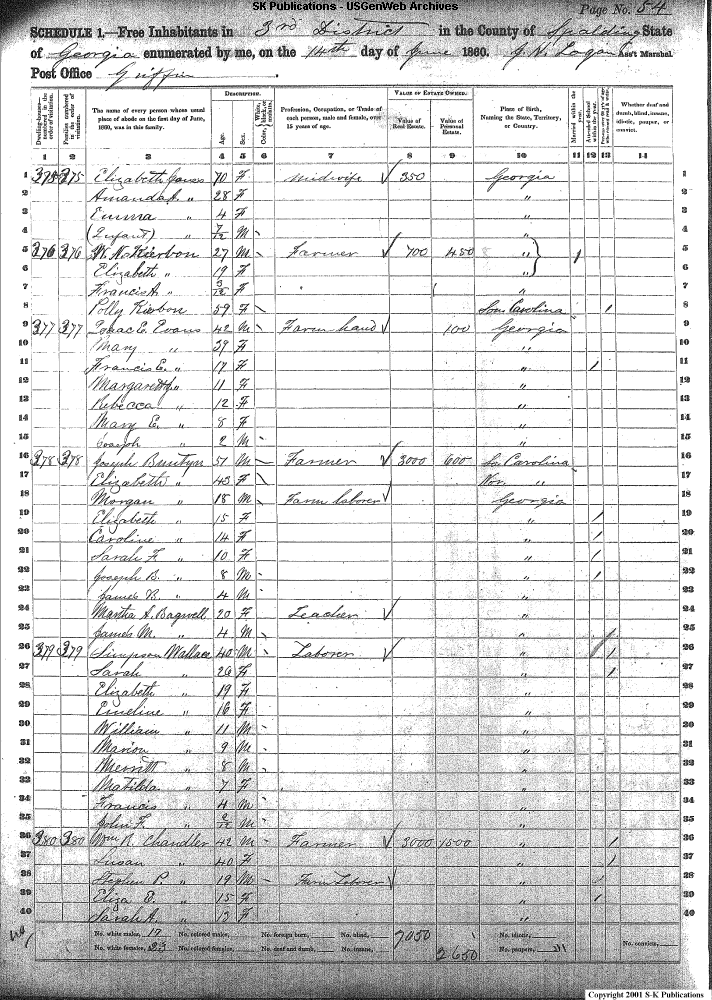 SK Publications - USGenWeb Archives
Page No. 54
SCHEDULE 1.—Free Inhabitants in 3rd District in the County of Spalding State
of Georgia enumerated by me, on the 14th day of June 1860. Logan Ass't Marshal
Post Office Griffin.
DESCRIPTION. VALUE OF ESTATE OWNED.
Dwelling-houses—numbered in the order of visitation. Families numbered in the order of visitation. The name of every person whose usual place of abode on the first day of June, 1860, was in this family. Age. Sex. Color, White, black, or mulatto. Profession, Occupation, or Trade of each person, male and female, over 15 years of age. Value of Real Estate. Value of Personal Estate. Place of Birth, Naming the State, Territory, or Country. Married within the year. Attended School within the year. Whether deaf and dumb, blind, insane, idiotic, pauper, or convict.
1 2 3 4 5 6 7 8 9 10 11 12 13 14
1 375 375 Elizabeth 70 F Midwife 350 Georgia 1
2 " 28 F " 2
3 Emma " 4 F " 3
4 (Infant) " 7/12 M " 4
5 376 376 27 M Farmer 700 450 " 5
6 Elizabeth " 19 F " 6
7 Francis A. " 3/12 F " 7
8 Polly 59 F Carolina 8
9 377 377 Isaac E. Evans 42 M Farm hand 100 Georgia 9
10 Mary " 39 F " 10
11 Francis E. " 17 F " 11
12 " 11 F " 12
13 Rebecca " 12 F " 13
14 Mary E. " 8 F " 14
15 Joseph " 2 M " 15
16 378 378 Joseph Buntyn 51 M Farmer 3000 600 So. Carolina 16
17 Elizabeth " 43 F Nor. " 17
18 Morgan " 18 M Farm laborer Georgia 18
19 Elizabeth " 15 F " 19
20 Caroline " 14 F " 20
21 Sarah F. " 10 F " 21
22 Joseph B. " 8 M " 22
23 James B. " 4 M " 23
24 Martha A. Bagwell 20 F Teacher " 24
25 James M. " 4 M " 25
26 379 379 Simpson Wallace 40 M Laborer " 26
27 Sarah " 26 F " 27
28 Elizabeth " 19 F " 28
29 Emeline " 16 F " 29
30 William " 11 M " 30
31 Marion " 9 M " 31
32 Merritt " 8 M " 32
33 Matilda " 7 F " 33
34 Francis " 4 M " 34
35 John F. " M " 35
36 380 380 Wm R. Chandler 42 M Farmer 3000 1500 " 36
37 Susan " 40 F " 37
38 Stephen P. " 19 M Farm Laborer " 38
39 Eliza E. " 15 F " 39
40 Sarah A. " F " 40
No. white males, 17 No. colored males, No. foreign born, No. blind, 7050 No. idiotic, No. convicts,
No. white females, 23 No. colored females, No. deaf and dumb, No. insane, 2650 No. paupers,
Copyright 2001 S-K Publications